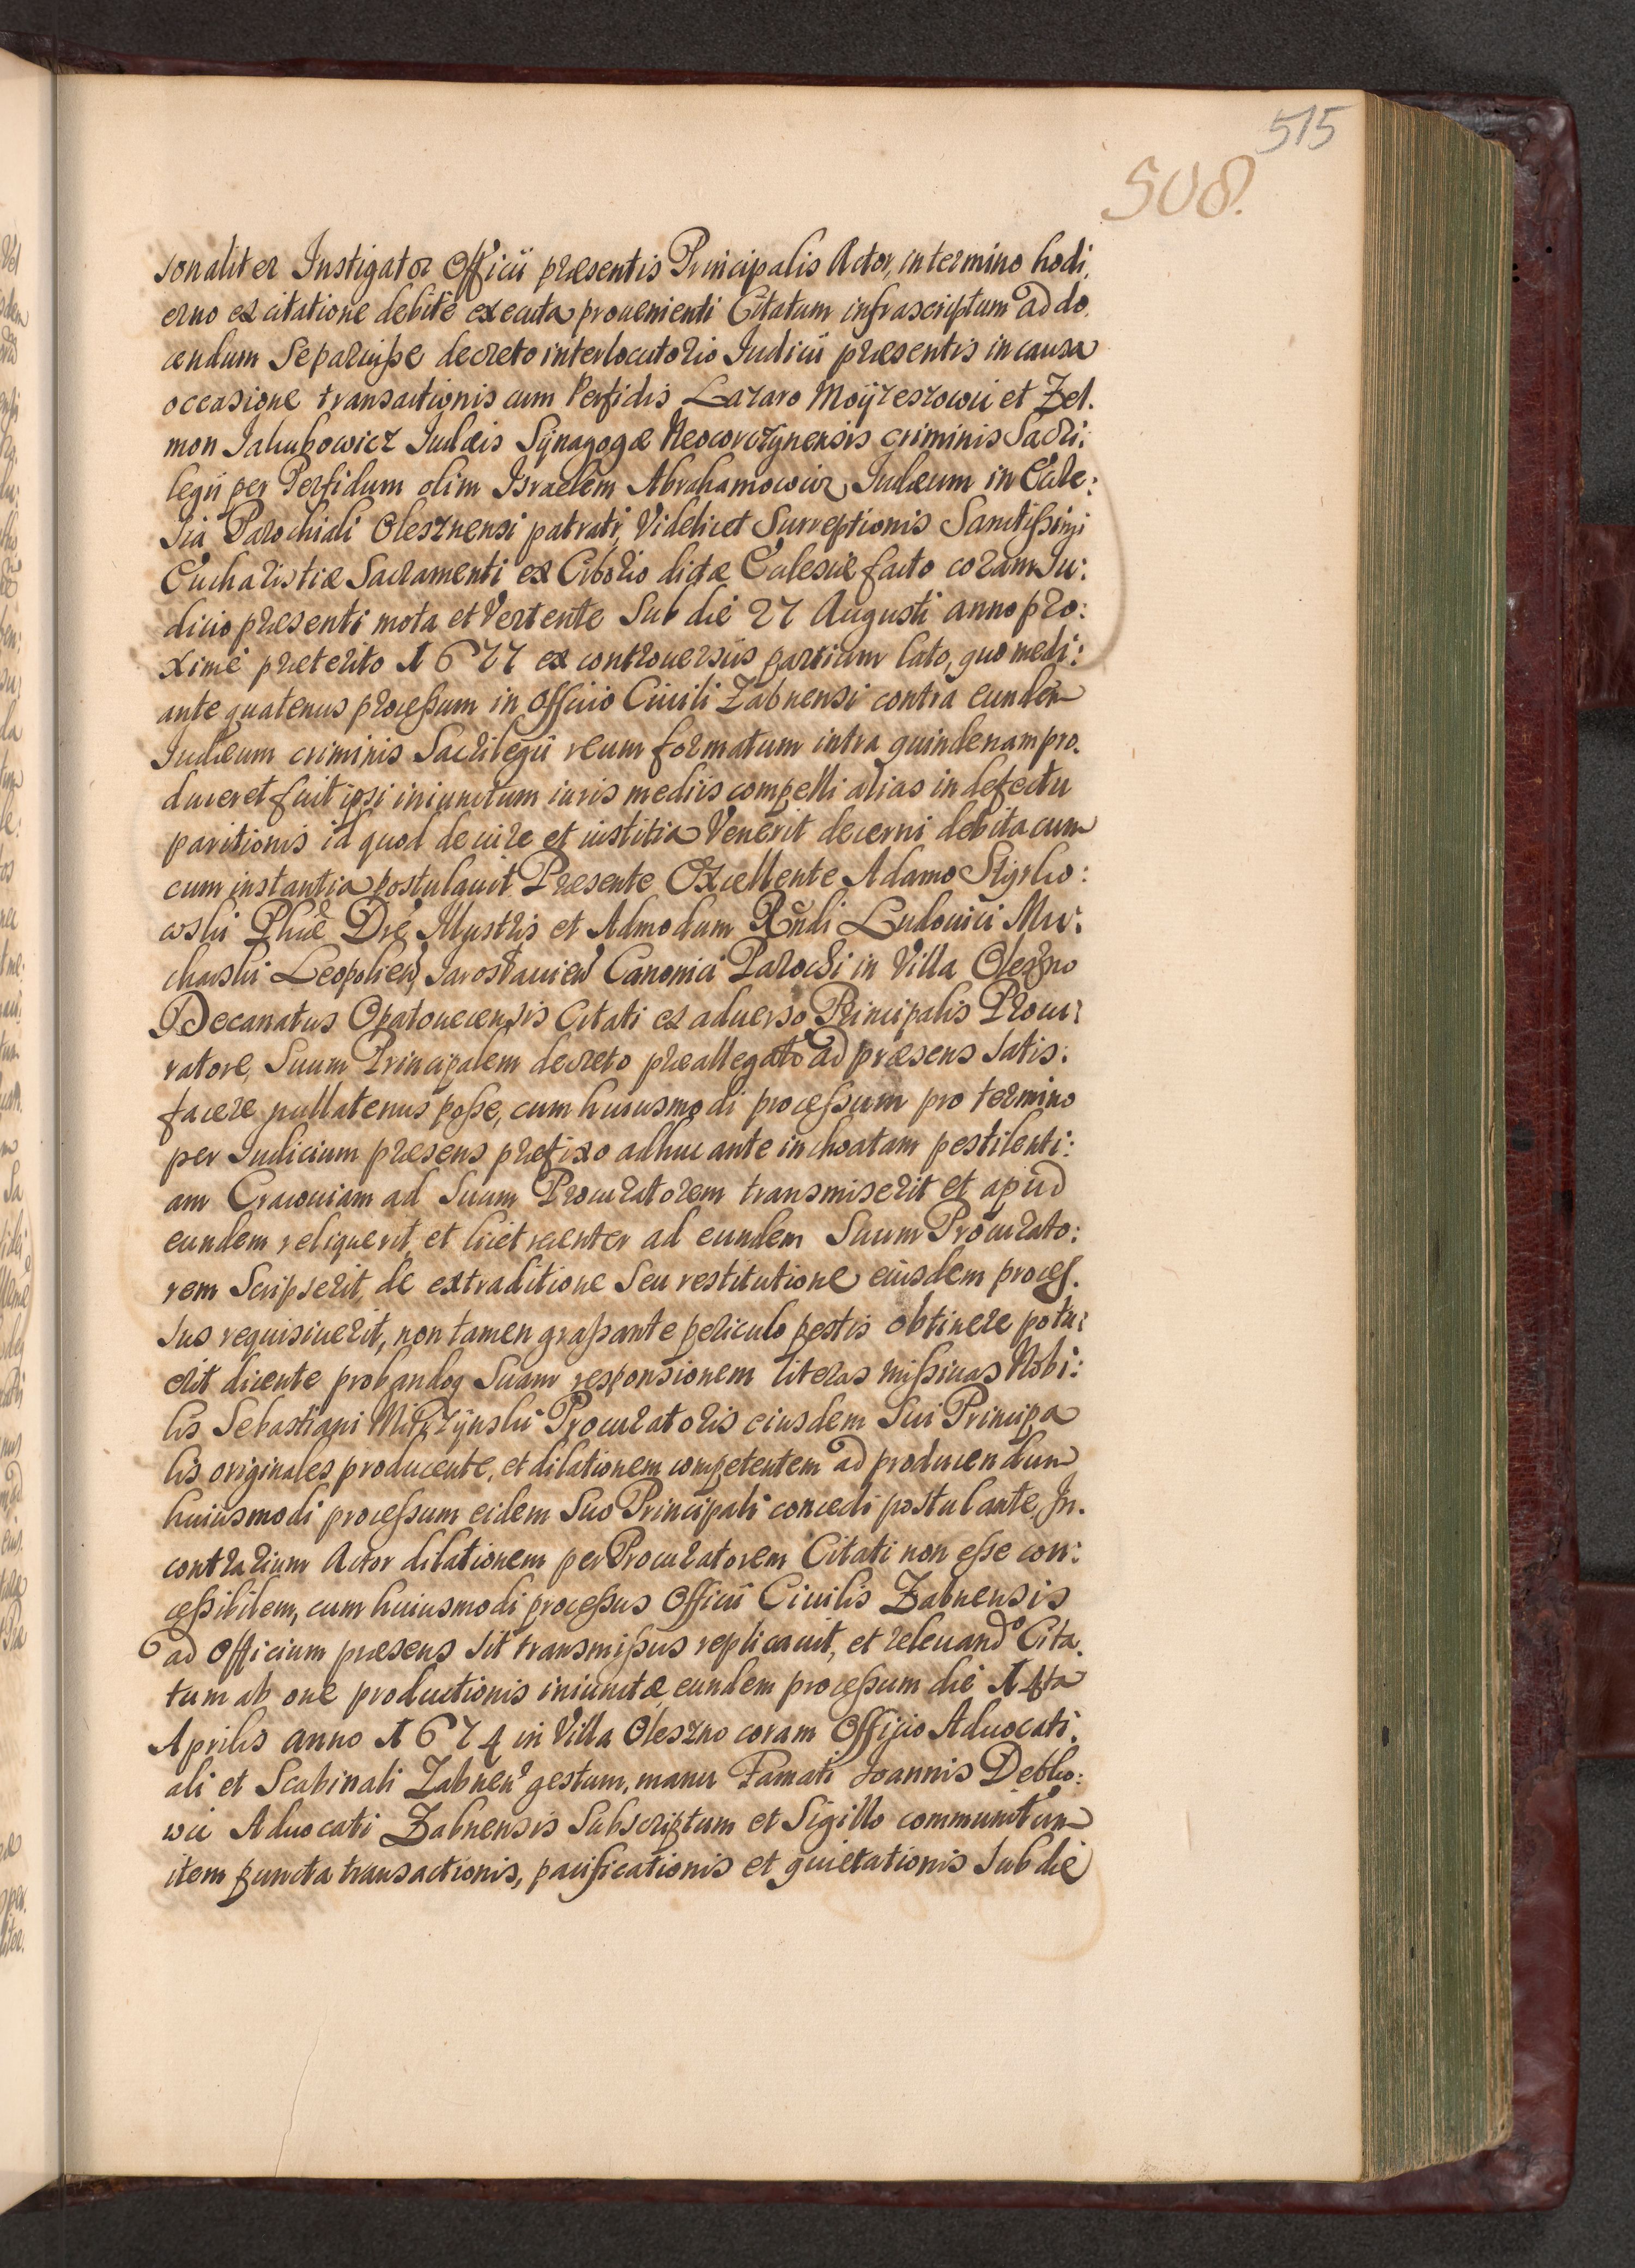 515
508.
sonaliter Instigator Officii præsentis Principalis Actor, in termino hodi,
erno ex citatione debite executa prouenienti Citatum infrascriptum ad do.
cendum Se paruisse decreto interlocutorio Iudicii præsentis in causa
occasione transactionis cum Perfidis Lazaro Moÿzeszowic et Zel.
mon Jakubowicz Iudæis Sÿnagogæ Neocorczÿnensis criminis Sacri:
legii per Perfidum olim Israelem Abrahamowicz Iudæum in Eccle:
sia Parochiali Olesznensi patrati, Videlicet Surreptionis Sanctissimi
Eucharistiæ Sacramenti ex Ciborio dictæ Eclesiæ facto coram Iu:
dicio præsenti mota et Vertente Sub die 27 Augusti anno pro:
xime præterito 1677 ex controuersiis partium lato, quo medi:
ante quatenus processum in Officio Ciuili Zabnensi contra eundem
Iudæum criminis Sacrilegii reum formatum intra quindenam pro.
duceret fuit ipsi iniunctum iuris mediis compelli alias in defectu
paritionis id quod de iure et iustitia Venerit decerni debita cum
cum instantia postulauit Præsente Excellente Adamo
Phiæ Dre Illustris et Admodum Rndi Ludouici Mu:
charski Leopolien, Jaroslauien Canonici Parochi in Villa Oleszno
Decanatus Opatoueciensis Citati ex aduerso Principalis Procu:
ratore, Suum Principalem decreto præallegato ad præsens satis:
facere nullatenus posse, cum huiusmodi processum pro termino
per Iudicium præsens præfixo adhuc ante inchoatam pestilenti:
am Cracouiam ad Suum Procuratorem transmiserit et apud
eundem reliquerit, et licet recenter ad eundem Suum Procurato:
rem Scripserit, de extraditione Seu restitutione eiusdem proces.
sus requisiuerit, non tamen grassante periculo pestis obtinere potu:
erit dicente probandoq Suam responsionem literas missiuas Nobi:
lis Sebastiani Procuratoris eiusdem Sui Principa
lis originales producente, et dilationem competentem ad producendum
huiusmodi processum eidem Suo Principali concedi postulante, In.
contrarium Actor dilationem per Procuratorem Citati non esse con:
cessibilem, cum huiusmodi processus Officii Ciuilis Zabnensis
ad Officium præsens sit transmissus replicauit, et releuando Cita.
tum ab one productionis iniunctæ, eundem processum die 14ta
Aprilis anno 1674 in Villa Oleszno coram Officio Aduocati.
ali et Scabinali Zabnen gestum, manu Famati Joannis Debko:
wic Aduocati Zabnensis Subscriptum et Sigillo communitum
item puncta transactionis, pacificationis et quietationis Sub die